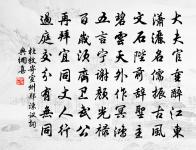 大夫官重醉江東
瀟灑名儒振古風
文石陛前辭聖主
碧雲天外作冥鴻
五言寧謝顏光祿
百歲須齊衛武公
再拜宜同丈人行
過庭交分有無同
杜牧寄宣州鄭諫議詞